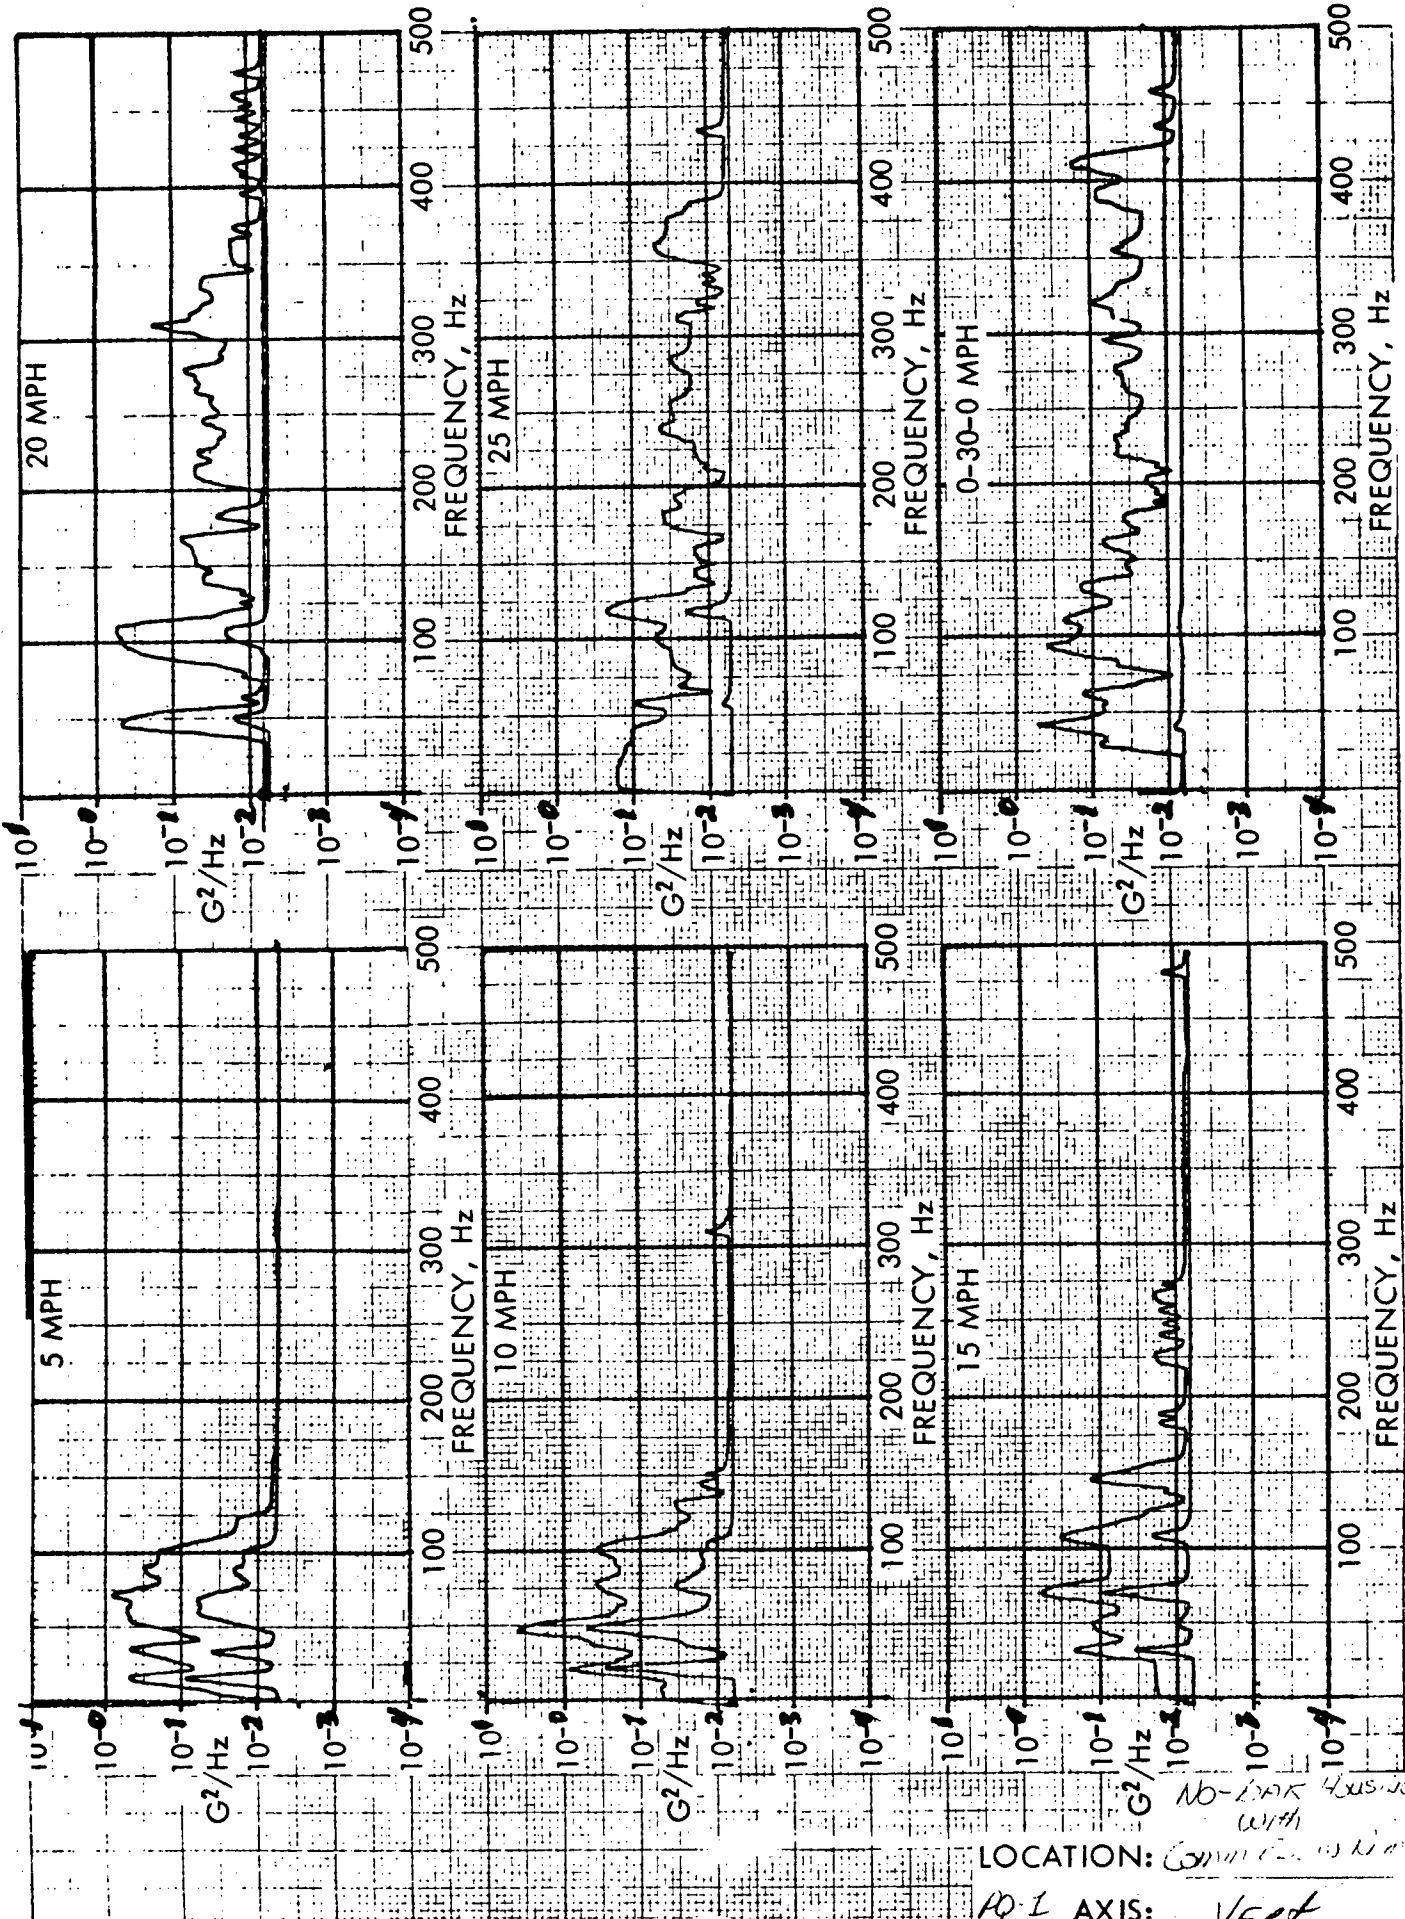 5 MPH
10¹
10-0
G²/Hz
10-1
10-2
10-3
10-4
100 200 300 400 500
FREQUENCY, Hz
20 MPH
10¹
10-0
10-1
G²/Hz
10-2
10-3
10-4
100 200 300 400 500
FREQUENCY, Hz
10 MPH
10¹
10-0
10-1
G²/Hz
10-2
10-3
10-4
100 200 300 400 500
FREQUENCY, Hz
25 MPH
10¹
10-0
10-1
G²/Hz
10-2
10-3
10-4
100 200 300 400 500
FREQUENCY, Hz
15 MPH
10¹
10-0
10-1
G²/Hz
10-2
10-3
10-4
100 200 300 400 500
FREQUENCY, Hz
0-30-0 MPH
10¹
10-0
10-1
G²/Hz
10-2
10-3
10-4
100 200 300 400 500
FREQUENCY, Hz
with
LOCATION:
AXIS: Vert